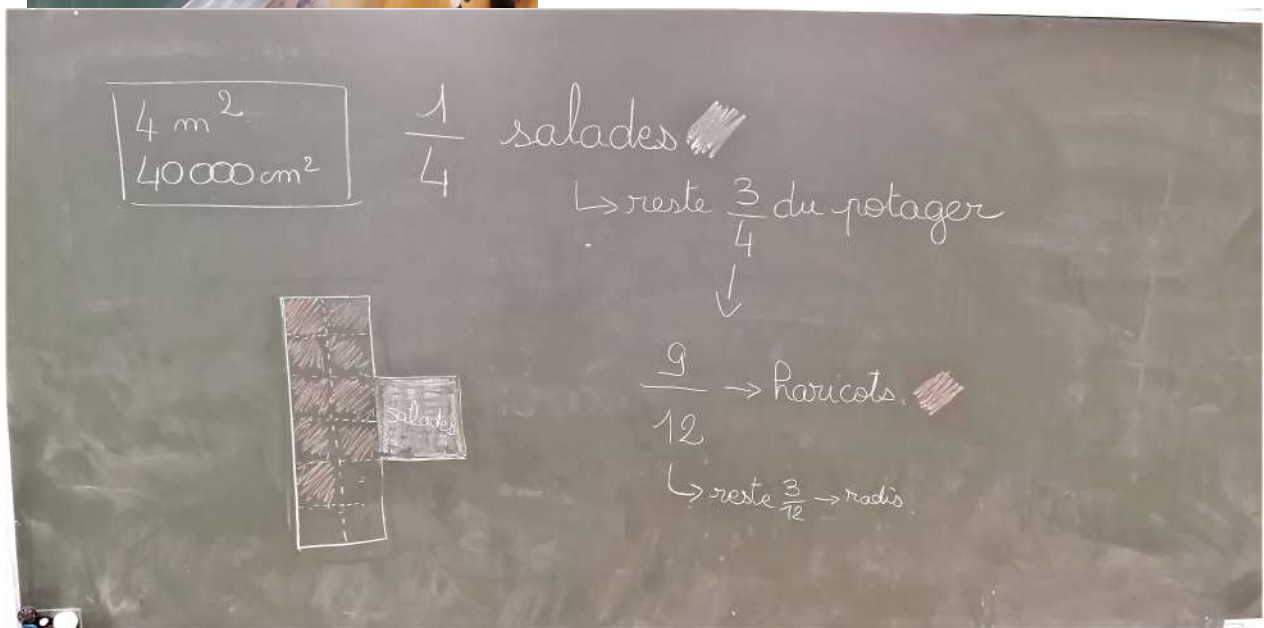 4 m²
40000 cm²
1/4 salades
↳ reste 3/4 du potager
↓
9/12 → haricots.
↳ reste 3/12 → radis.
salades